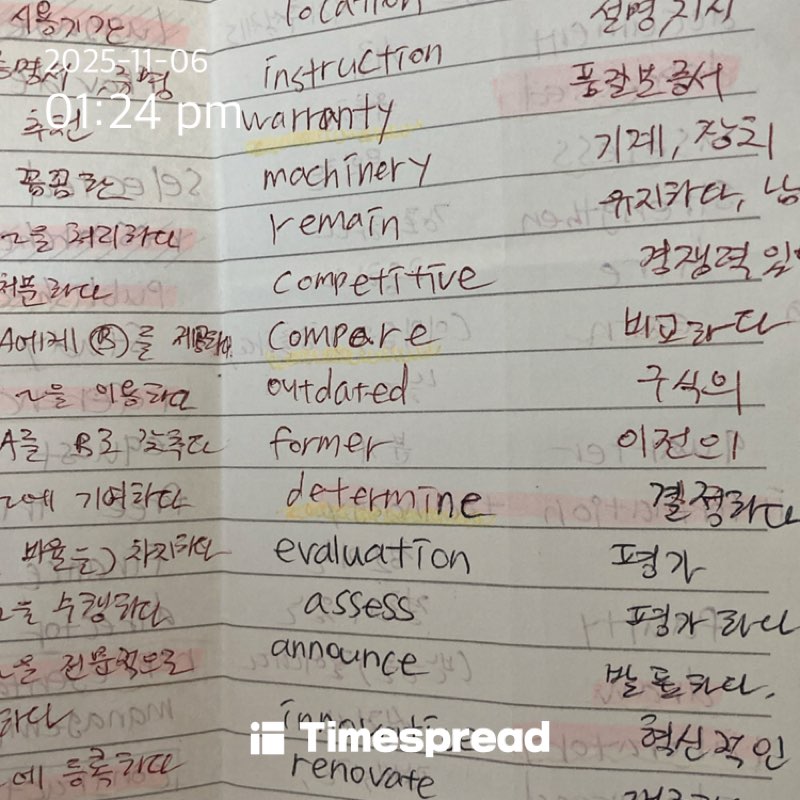 location
사용기간
instruction 설명, 지시
2025-11-06
01:24 pm
추천 warranty 품질보증서
꼼꼼한 machinery 기계, 장치
~을 처리하다 remain 유지하다, 남
competitive 경쟁력 있
A에게 B를 제공하다 compare 비교하다
~을 이용하다 outdated 구식의
A를 B로 갖추다 former 이전의
~에 기여하다 determine 결정하다
비율을) 차지하다 evaluation 평가
~을 수행하다 assess 평가하다
~을 전문적으로 announce 발표하다,
하다 innovative 혁신적인
Timespread
에 등록하다 renovate